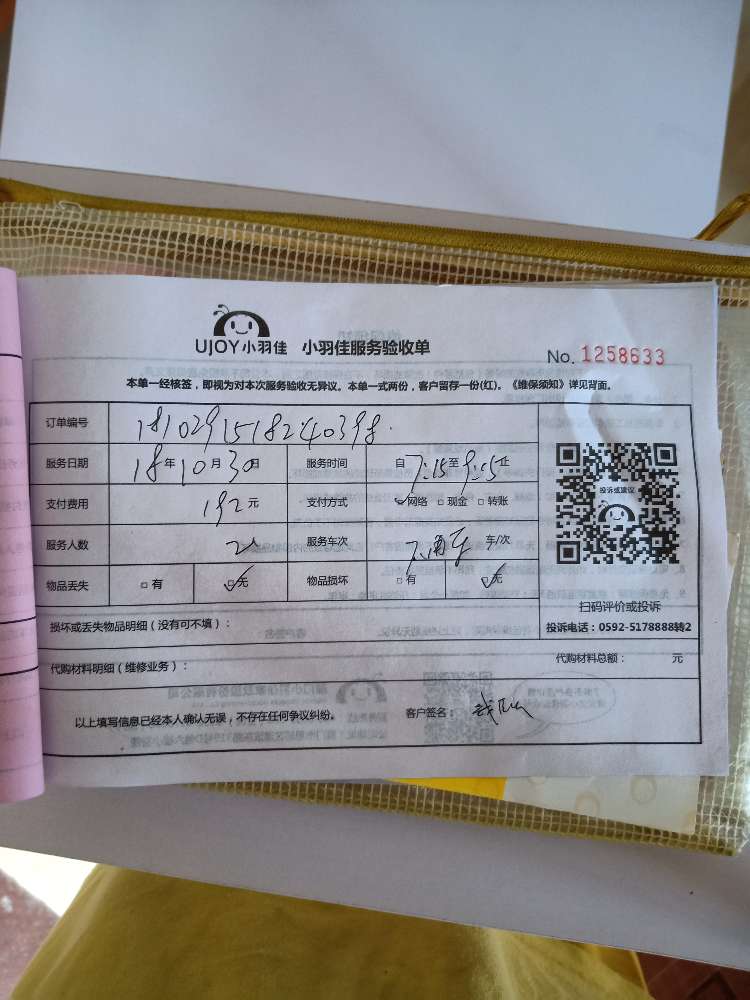 UJOY小羽佳 小羽佳服务验收单
No. 1258633
本单一经核签，即视为对本次服务验收无异议。本单一式两份，客户留存一份(红)。《维保须知》详见背面。
订单编号 1810291518240398
服务日期 18年10月30日 服务时间 自7:15至9:55止
支付费用 192元 支付方式 ☑网络 □现金 □转账
投诉或建议
服务人数 2人 服务车次 车/次
物品丢失 □有 ☑无 物品损坏 □有 ☑无
扫码评价或投诉
投诉电话：0592-5178888转2
损坏或丢失物品明细（没有可不填）：
代购材料明细（维修业务）： 代购材料总额： 元
以上填写信息已经本人确认无误，不存在任何争议纠纷。 客户签名：